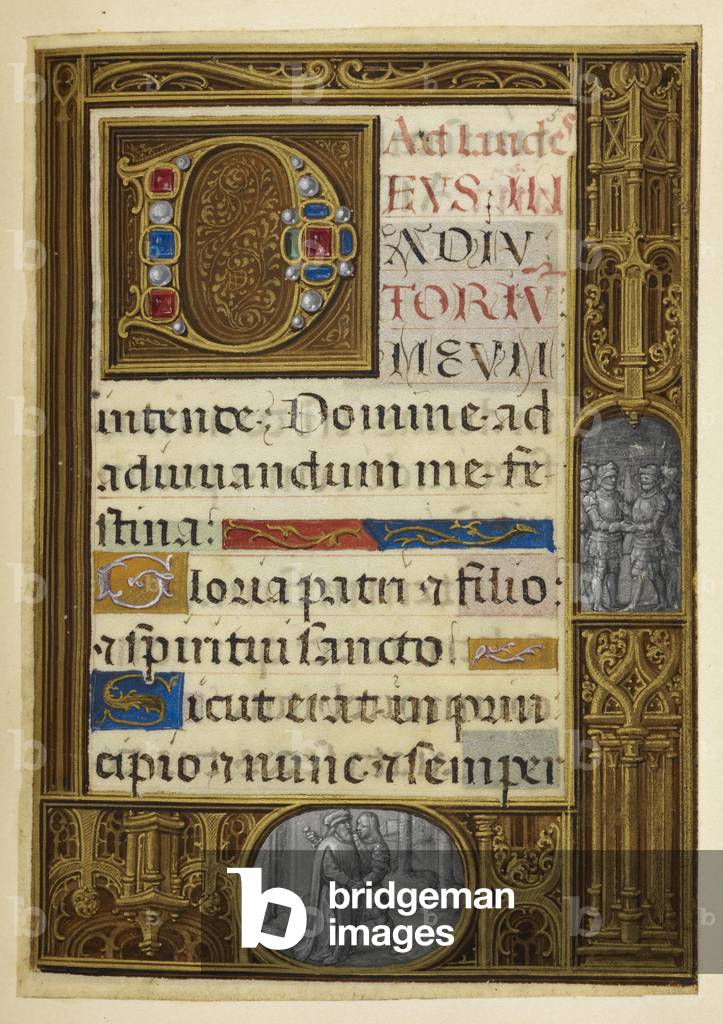 Ad laudes
DEUS IN
ADIU
TORIU
MEUM
intende: Domine ad
adiuuandum me fe-
stina:
Gloria patri ⁊ filio:
⁊ spiritui sancto
Sicut erat in prin
cipio ⁊ nunc ⁊ semper
b bridgeman
images